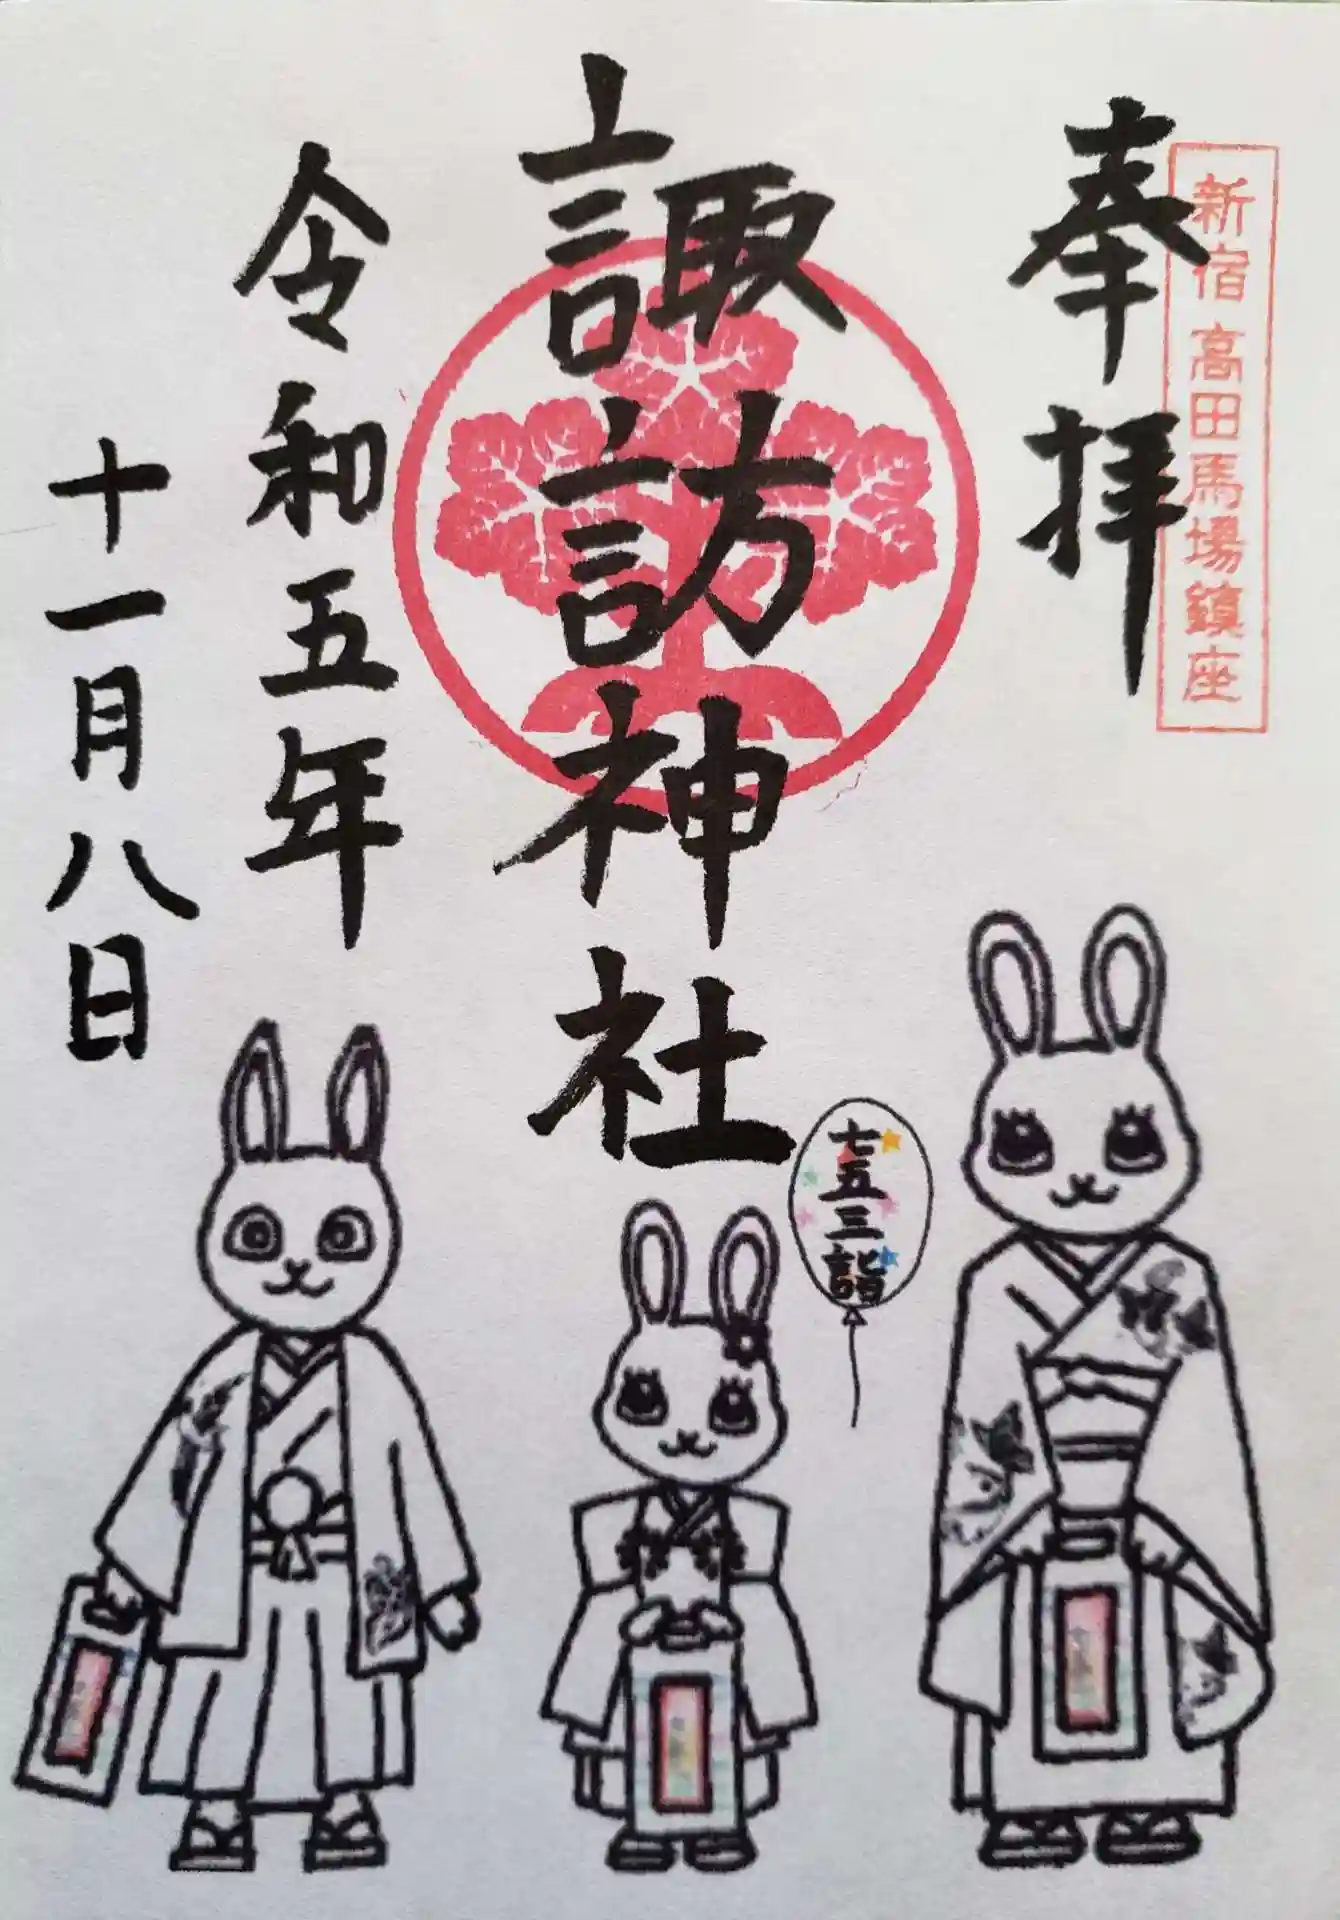 新宿高田馬場鎮座
奉拝
諏訪神社
令和五年
十一月八日
七五三詣